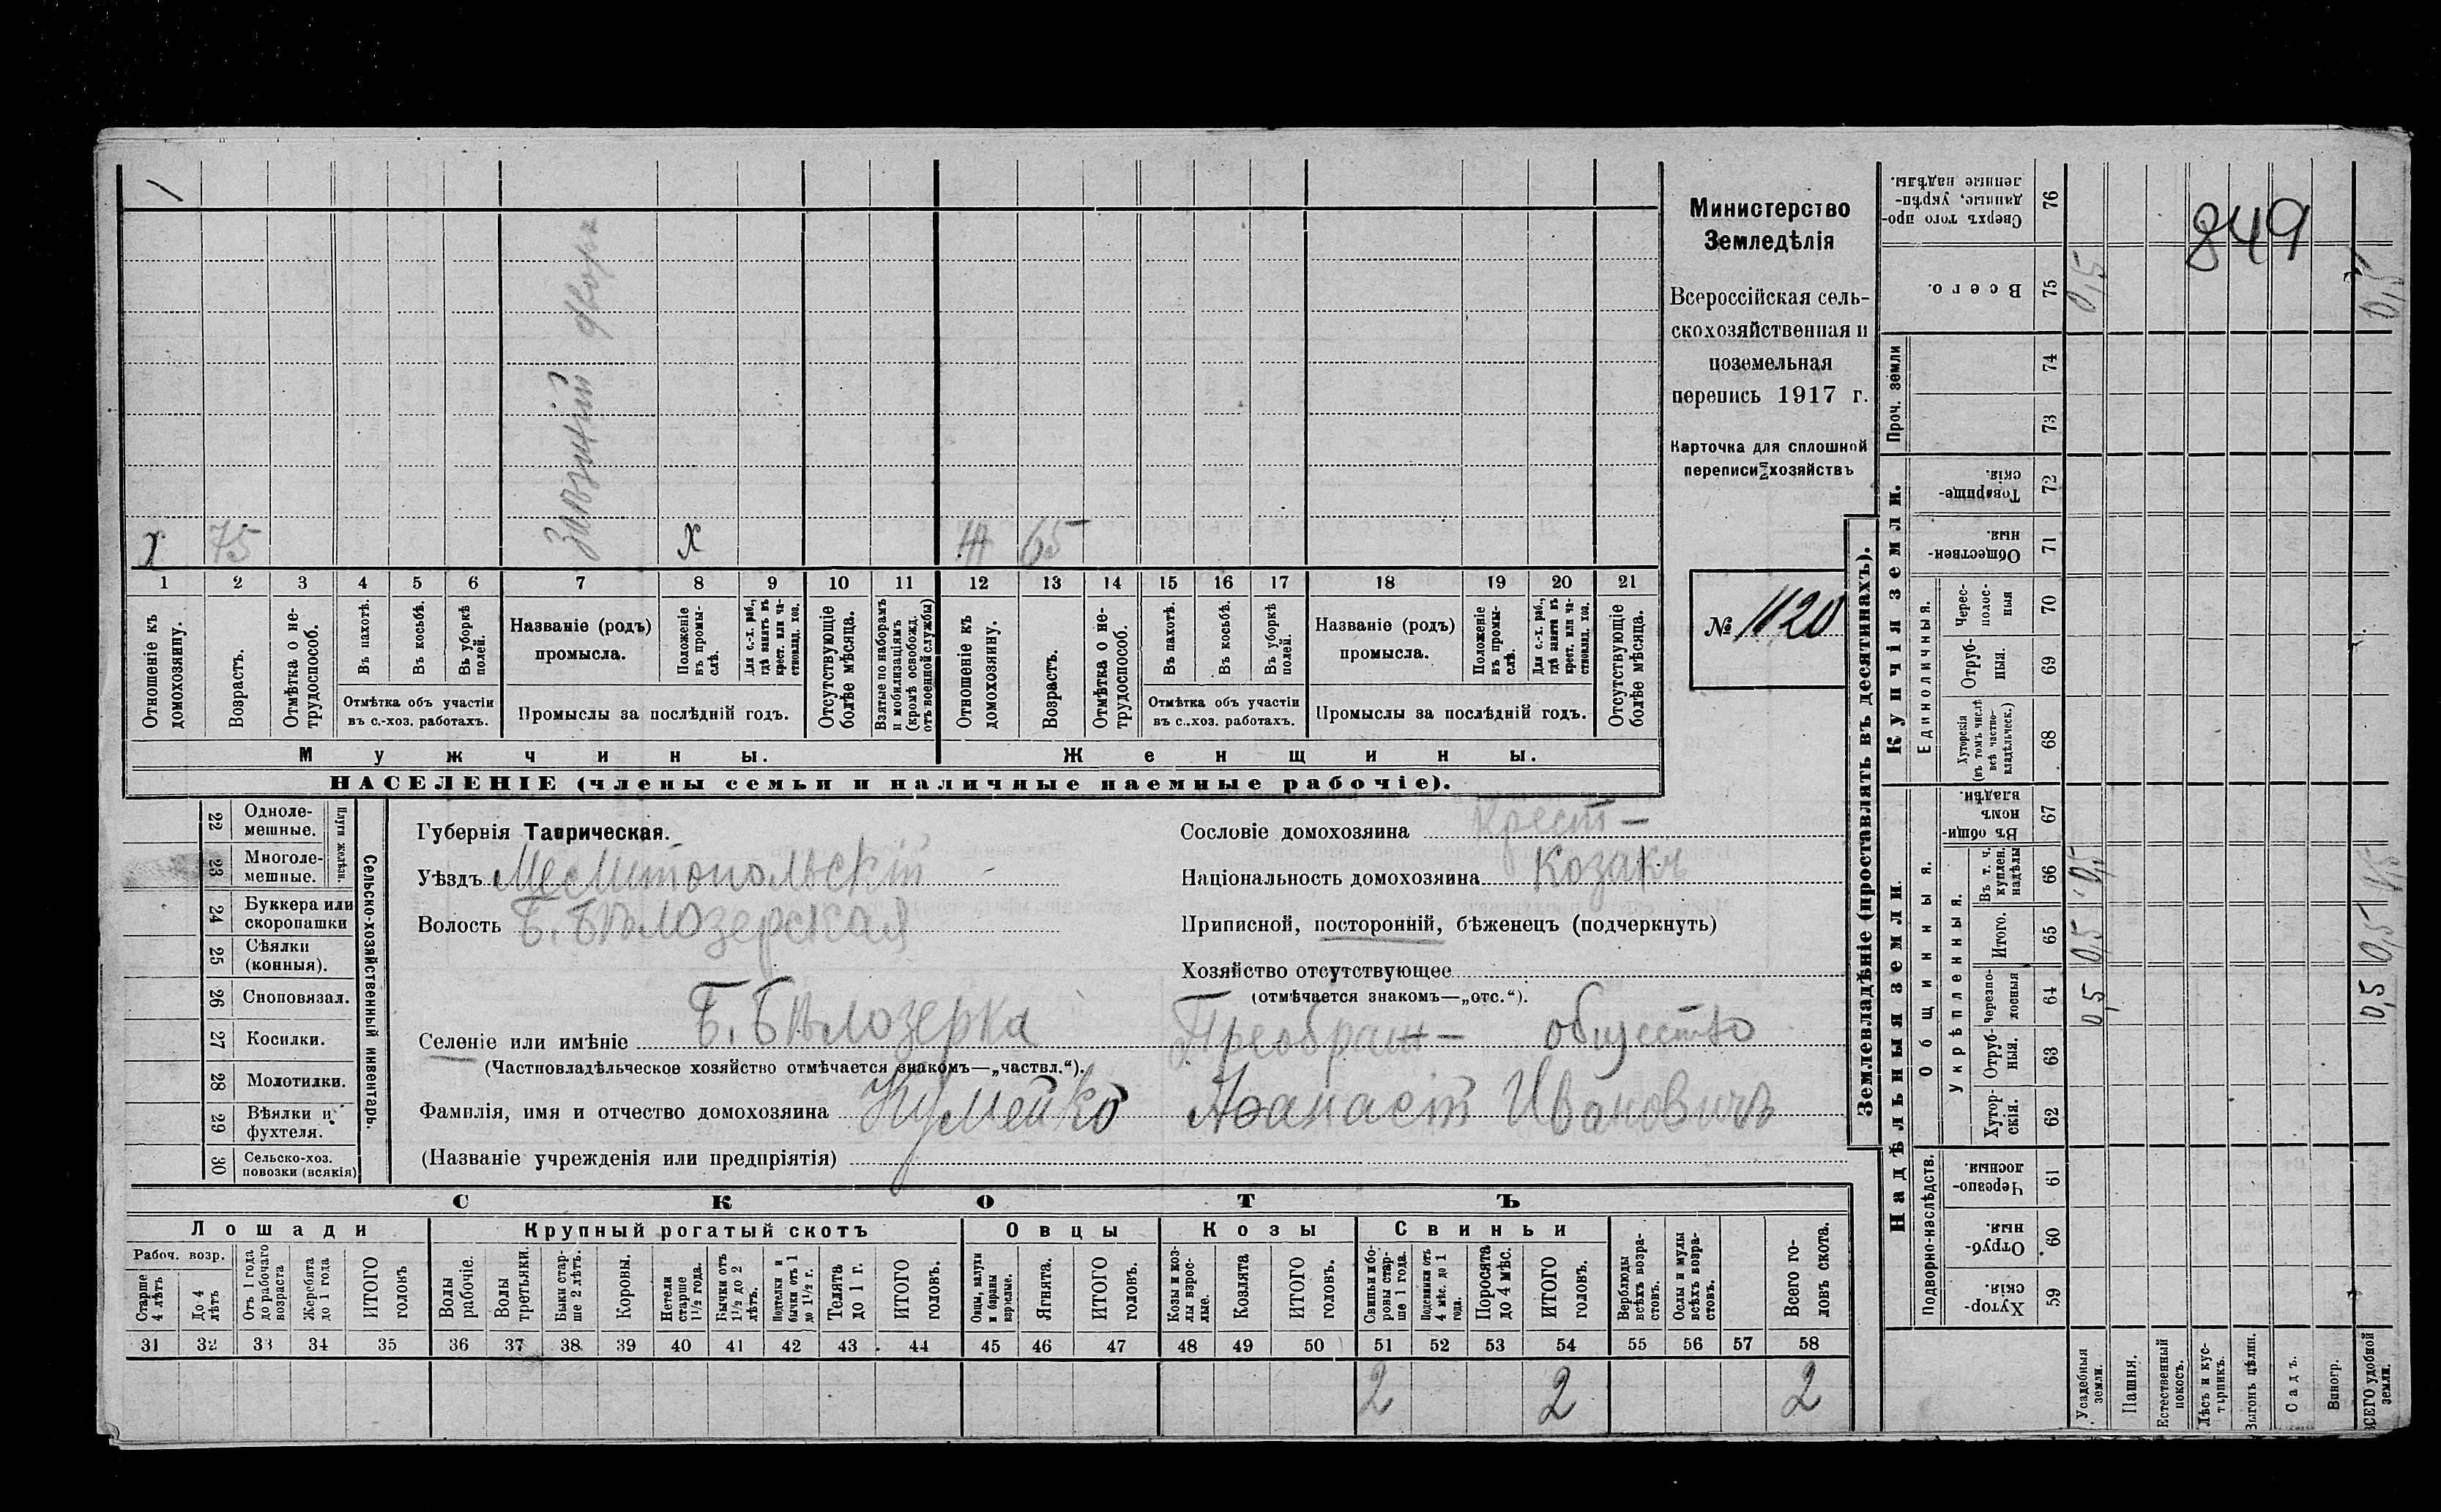 849
Министерство
Земледѣлія
Всероссійская сель-
скохозяйственная и
поземельная
перепись 1917 г.
Карточка для сплошной
переписи хозяйствъ
№ 1120
х 75 х 65
1 2 3 4 5 6 7 8 9 10 11 12 13 14 15 16 17 18 19 20 21
Отношеніе къ домохозяину.
Возрастъ.
Отмѣтка о не-трудоспособ.
Въ пахотѣ.
Въ косьбѣ.
Въ уборкѣ полей.
Отмѣтка объ участіи
въ с.-хоз. работахъ.
Названіе (родъ)
промысла.
Положеніе въ промы-слѣ.
Для с.-х. раб., гдѣ занятъ въ крест. или ча-ствовлад. хоз.
Промыслы за послѣдній годъ.
Отсутствующіе болѣе мѣсяца.
Взятые по наборамъ и мобилизаціямъ (кромѣ освобожд. отъ военной службы)
Отношеніе къ домохозяину.
Возрастъ.
Отмѣтка о не-трудоспособ.
Въ пахотѣ.
Въ косьбѣ.
Въ уборкѣ полей.
Отмѣтка объ участіи
въ с.-хоз. работахъ.
Названіе (родъ)
промысла.
Положеніе въ промы-слѣ.
Для с.-х. раб., гдѣ занята въ крест. или ча-ствовлад. хоз.
Промыслы за послѣдній годъ.
Отсутствующіе болѣе мѣсяца.
Мужчины.
Женщины.
НАСЕЛЕНІЕ (члены семьи и наличные наемные рабочіе).
22 Одноле-мешные.
23 Многоле-мешные.
Плуги желѣзн.
24 Буккера или скоропашки
25 Сѣялки (конныя).
26 Сноповязал.
27 Косилки.
28 Молотилки.
29 Вѣялки и фухтеля.
30 Сельско-хоз. повозки (всякія)
Сельско-хозяйственный инвентарь.
Губернія Таврическая.
Уѣздъ Мелитопольскій
Волость Б. Бѣлозерская
Селеніе или имѣніе Б. Бѣлозерка Преображ- общество
(Частновладѣльческое хозяйство отмѣчается знакомъ—„частвл.“).
Фамилія, имя и отчество домохозяина Кумейко Афанасій Ивановичъ
(Названіе учрежденія или предпріятія)
Сословіе домохозяина Крест-
Національность домохозяина Козакъ
Приписной, посторонній, бѣженецъ (подчеркнуть)
Хозяйство отсутствующее
(отмѣчается знакомъ—„отс.“).
СКОТЪ
Лошади Крупный рогатый скотъ Овцы Козы Свиньи
Рабоч. возр.
Старше 4 лѣтъ
До 4 лѣтъ
Отъ 1 года до рабочаго возраста
Жеребята до 1 года
ИТОГО головъ
Волы рабочіе.
Волы третьяки.
Быки стар-ше 2 лѣтъ.
Коровы.
Нетели старше 1½ года.
Бычки отъ 1½ до 2 лѣтъ.
Подтелки и бычки отъ 1 до 1½ г.
Телята до 1 г.
ИТОГО головъ.
Овцы, валухи и бараны взрослые.
Ягнята.
ИТОГО головъ.
Козы и коз-лы взрос-лые.
Козлята
ИТОГО головъ.
Свиньи и бо-ровы стар-ше 1 года.
Подсвинки отъ 4 мѣс. до 1 года.
Поросята до 4 мѣс.
ИТОГО головъ.
Верблюды всѣхъ возра-стовъ.
Ослы и мулы всѣхъ возра-стовъ.
Всего го-ловъ скота.
31 32 33 34 35 36 37 38 39 40 41 42 43 44 45 46 47 48 49 50 51 52 53 54 55 56 57 58
2 2 2
Землевладѣніе (проставлять въ десятинахъ).
Надѣльныя земли.
Купчія земли.
Проч. земли
Подворно-наслѣдств.
Общинныя.
Укрѣпленныя.
Единоличныя.
59 Хутор-скія.
60 Отруб-ныя.
61 Черезпо-лосныя.
62 Хутор-скія.
63 Отруб-ныя.
64 Черезпо-лосныя 0,5 0,5
65 Итого. 0,5 0,5
66 Въ т. ч. куплен. надѣлы 0,5 0,5
67 Въ общин-номъ владѣн.
68 Хуторскія (въ томъ числѣ всѣ частно-владѣльческ.)
69 Отруб-ныя.
70 Черес-полос-ныя
71 Обществен-ныя.
72 Товарище-скія.
73
74
75 Всего. 0,5 0,5
76 Сверхъ того про-данные, укрѣп-ленные надѣлы.
Усадебныя земли.
Пашня.
Естественный покосъ.
Лѣсъ и кус-тарникъ.
Выгонъ цѣлин.
Садъ.
Виногр.
ВСЕГО удобной земли.